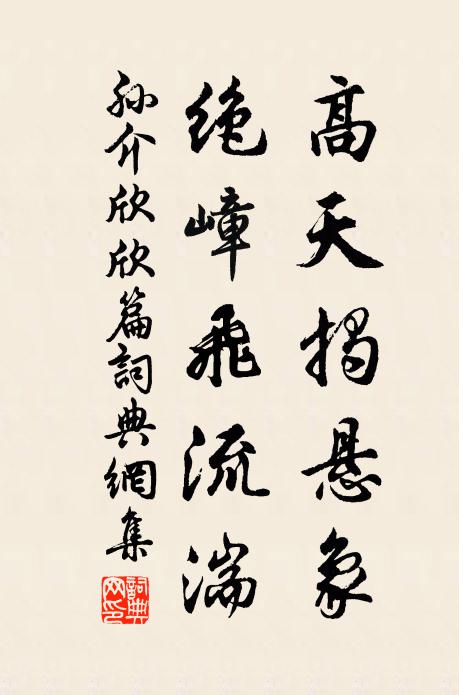 高天揭悬象
绝嶂飛流湍
孙介欣欣篇詞典網集
詞典网印